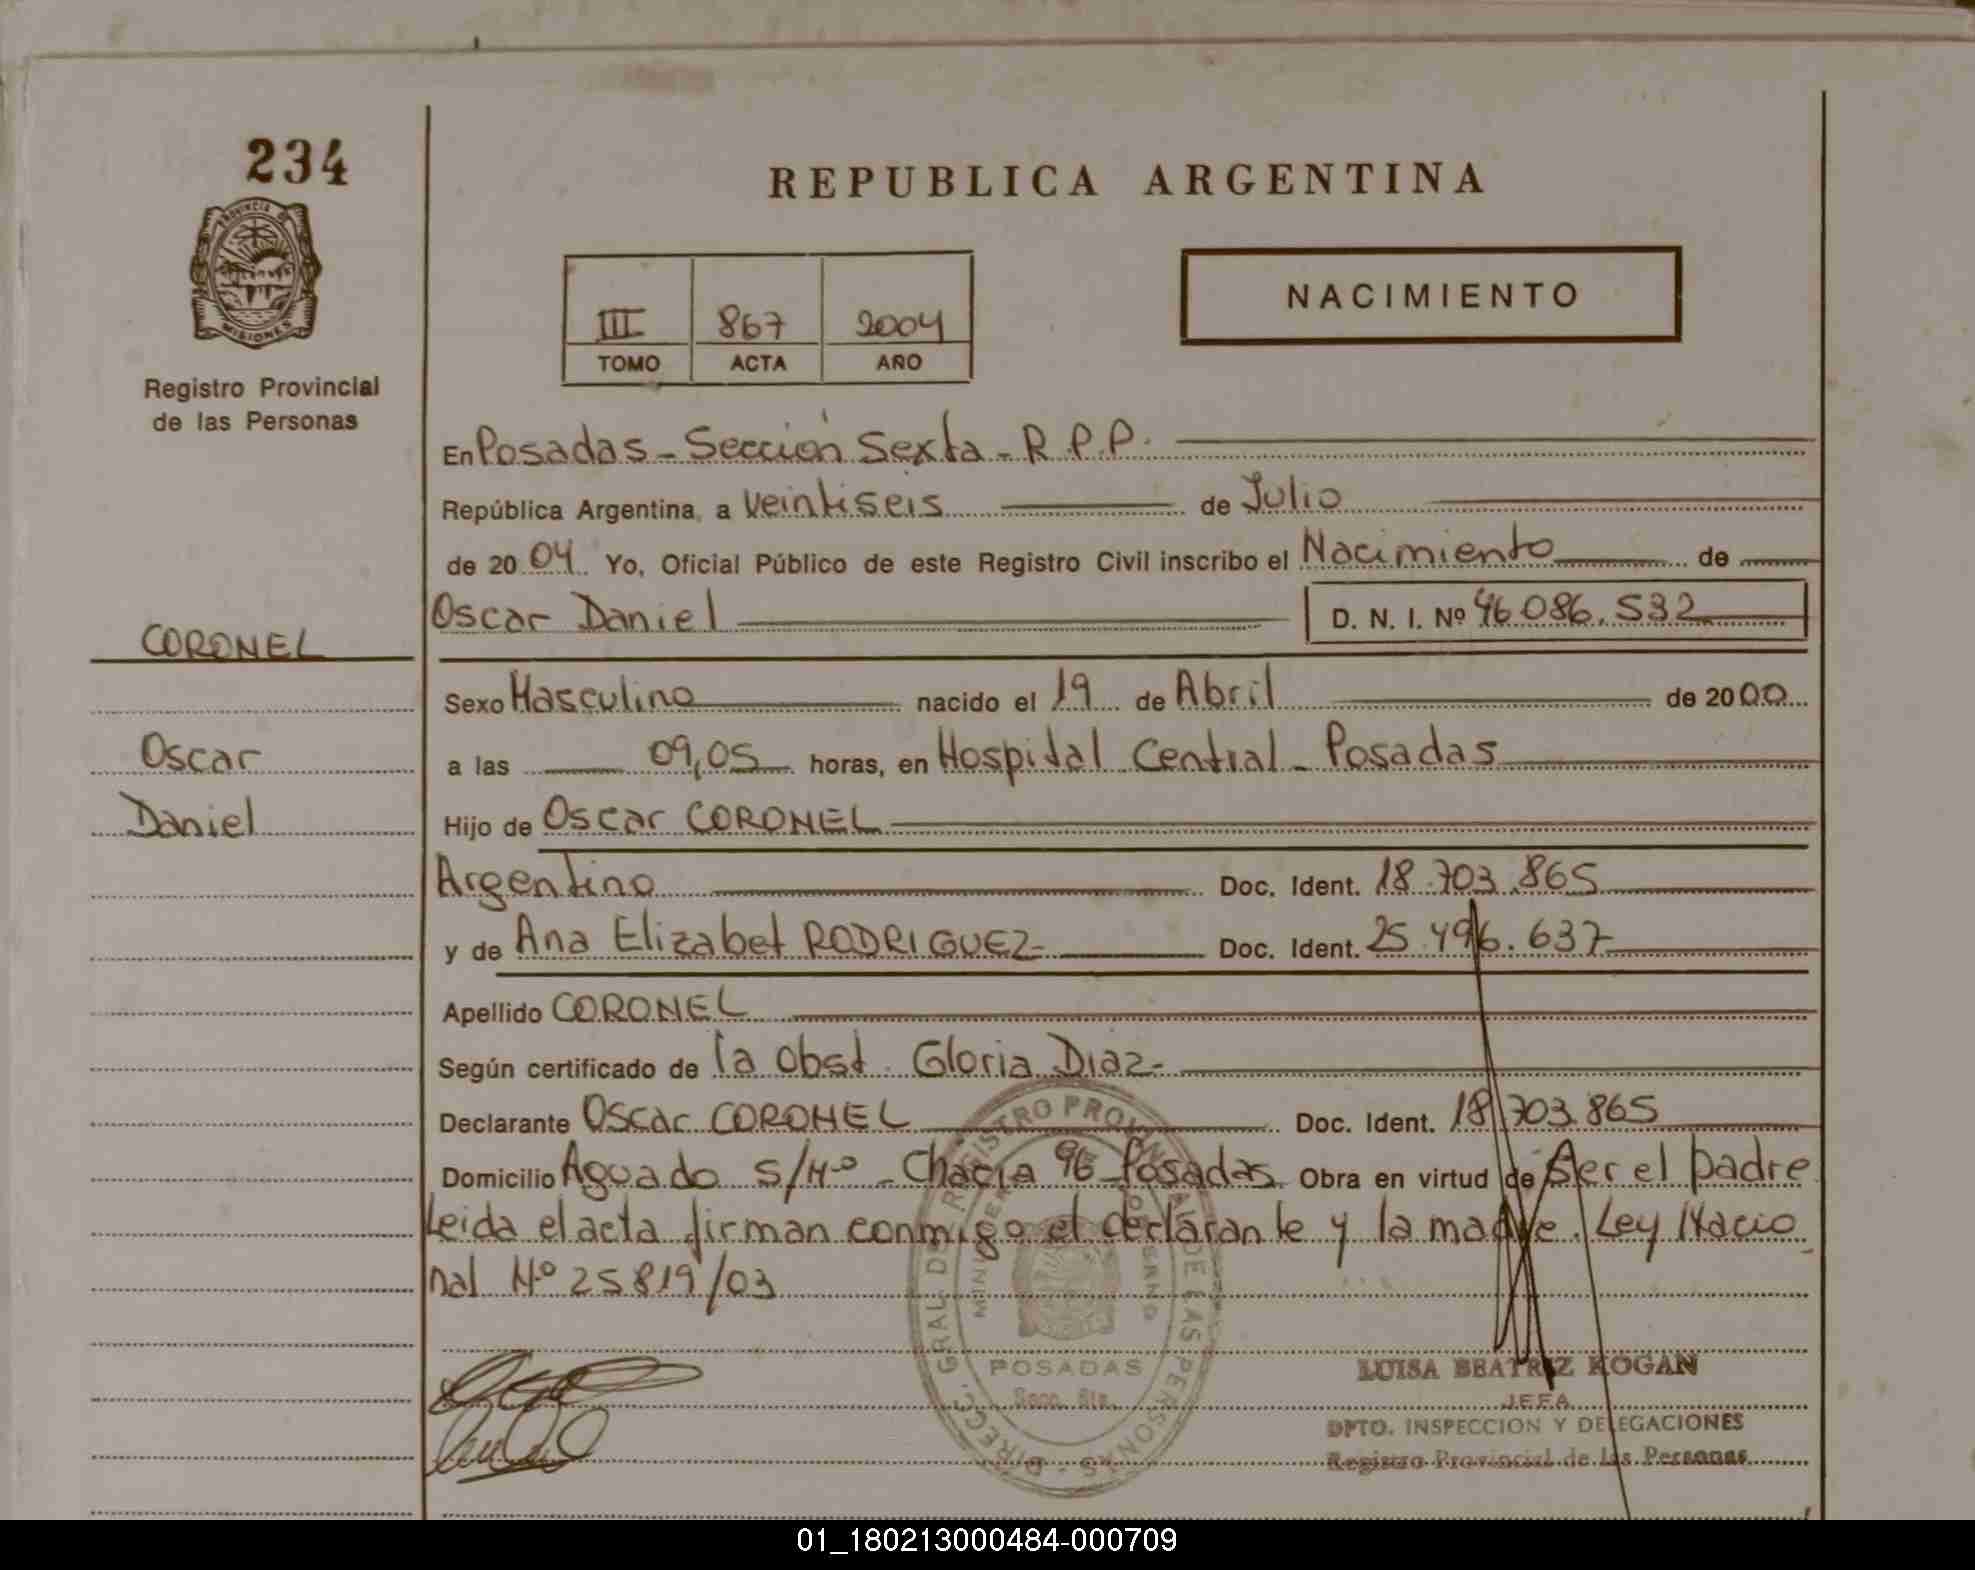 234
PROVINCIA DE
MISIONES
Registro Provincial
de las Personas
CORONEL
Oscar
Daniel
REPUBLICA ARGENTINA
III 867 2004
TOMO ACTA AÑO
NACIMIENTO
En Posadas - Sección Sexta - R.P.P.
República Argentina, a Veintiseis de Julio
de 2004 Yo, Oficial Público de este Registro Civil inscribo el Nacimiento de
Oscar Daniel D. N. I. Nº 46.086.532
Sexo Masculino nacido el 19 de Abril de 2000
a las 09,05 horas, en Hospital Central - Posadas
Hijo de Oscar CORONEL
Argentino Doc. Ident. 18.703.865
y de Ana Elizabet RODRIGUEZ- Doc. Ident. 25.496.637
Apellido CORONEL
Según certificado de la Obst. Gloria Diaz-
Declarante Oscar CORONEL Doc. Ident. 18.703.865
Domicilio Aguado S/Nº - Chacra 96 - Posadas Obra en virtud de Ser el padre
Leida el acta firman conmigo el declarante y la madre. Ley Nacio
nal Nº 25819/03
DIRECC. GRAL DE REGISTRO PROVINCIAL DE LAS PERSONAS
POSADAS
LUISA BEATRIZ KOGAN
JEFA
DPTO. INSPECCION Y DELEGACIONES
Registro Provincial de las Personas
01_180213000484-000709